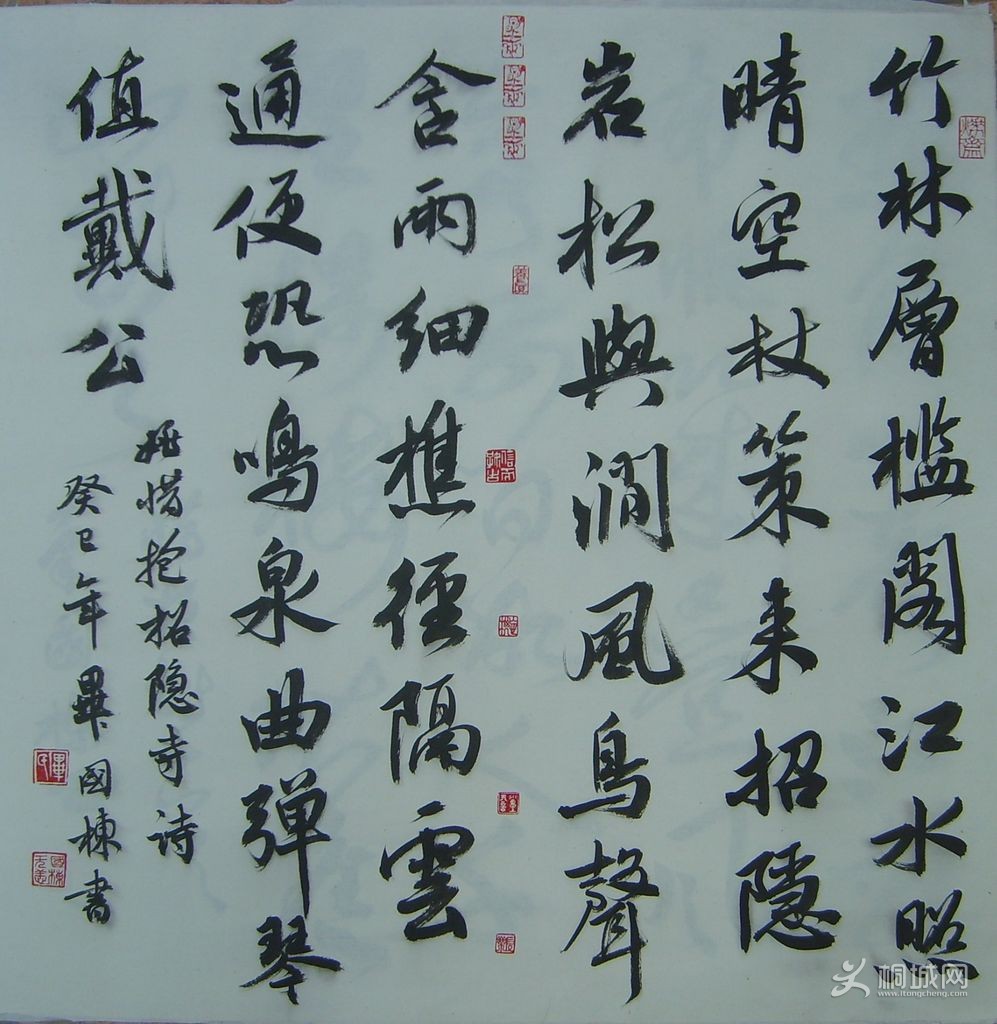 竹林層檻閣江水照
晴空杖策来招隐
岩松與澗風鳥聲
含雨细樵徑隔雲
通便恐鳴泉曲弹琴
值戴公
姚惜抱招隐寺诗
癸巳年畢國棟書
桐城网
www.itongcheng.com